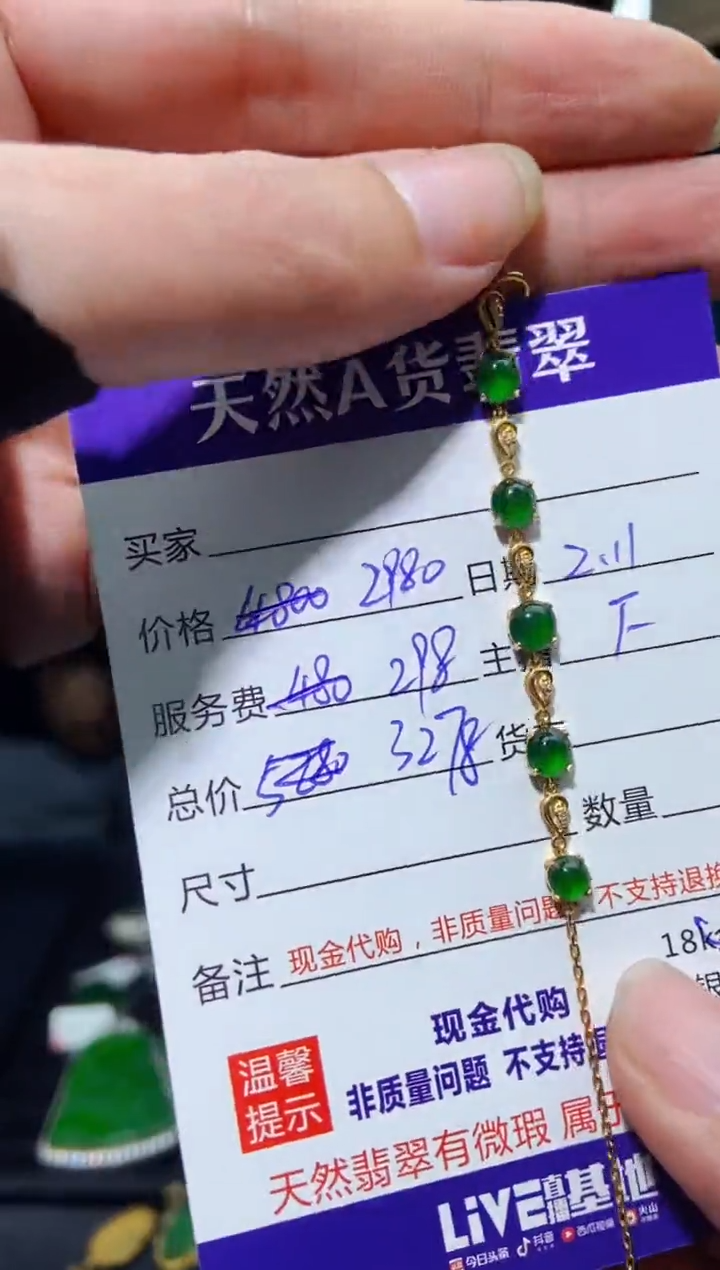 天然A货翡翠
买家
价格 4800 2980 日期 2.11
服务费 480 298 主
总价 3278 货
尺寸 数量
备注 现金代购，非质量问题 不支持退换
18k
银
温馨提示
现金代购
非质量问题 不支持退
天然翡翠有微瑕 属于
LiVE直播基地
今日头条 抖音 西瓜视频 火山